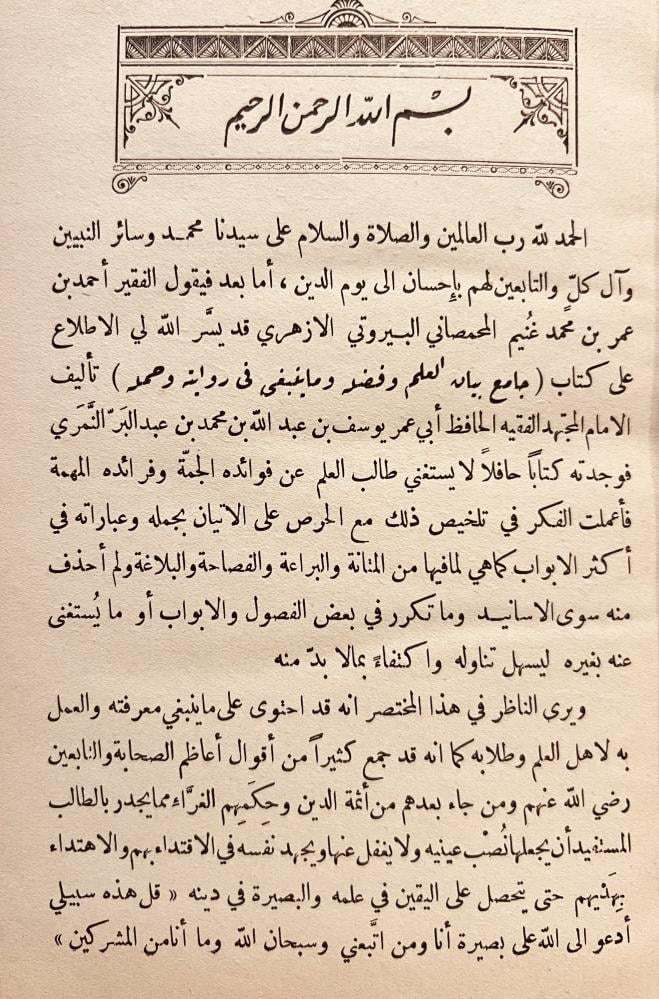 بسم الله الرحمن الرحيم
الحمد لله رب العالمين والصلاة والسلام على سيدنا محمد وسائر النبيين
وآل كلٍّ والتابعين لهم بإِحسان الى يوم الدين ، أما بعد فيقول الفقير أحمد بن
عمر بن محمد غُنيم المحمصاني البيروتي الازهري قد يسَّر الله لي الاطلاع
على كتاب ( جامع بيان العلم وفضله وما ينبغي في روايته وحمله ) تأليف
الامام المجتهد الفقيه الحافظ أبي عمر يوسف بن عبد الله بن محمد بن عبد البَرّ النَّمَري
فوجدته كتاباً حافلاً لا يستغني طالب العلم عن فوائده الجمّة وفرائده المهمة
فأعملت الفكر في تلخيص ذلك مع الحرص على الاتيان بجمله وعباراته في
أكثر الابواب كما هي لما فيها من المتانة والبراعة والفصاحة والبلاغة ولم أحذف
منه سوى الاسانيد وما تكرر في بعض الفصول والابواب أو ما يُستغنى
عنه بغيره ليسهل تناوله واكتفاءً بما لا بدّ منه
ويرى الناظر في هذا المختصر انه قد احتوى على ما ينبغي معرفته والعمل
به لاهل العلم وطلابه كما انه قد جمع كثيراً من أقوال أعاظم الصحابة والتابعين
رضي الله عنهم ومن جاء بعدهم من أئمة الدين وحِكَمِهم الغرَّاء مما يجدر بالطالب
المستفيد أن يجعلها نُصْب عينيه ولا يغفل عنها ويجهد نفسه في الاقتداء بهم والاهتداء
بِهَدْيهم حتى يتحصل على اليقين في علمه والبصيرة في دينه « قل هذه سبيلي
أدعو الى الله على بصيرة أنا ومن اتَّبعني وسبحان الله وما أنا من المشركين »